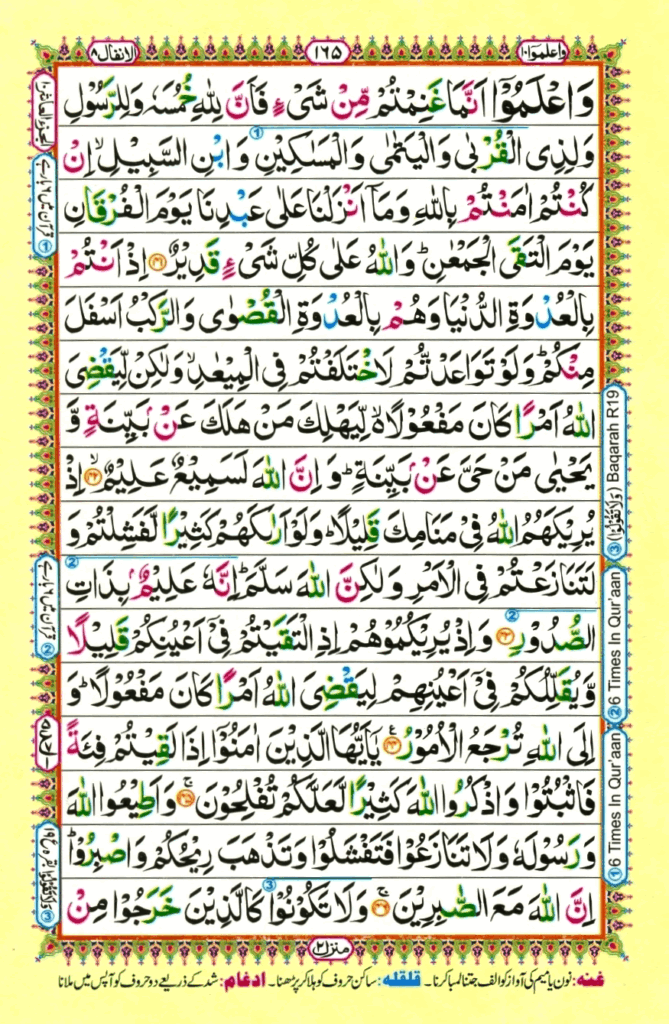 واعلموا ١٠
١٦٥
الانفال ٨
وَاعْلَمُوْۤا اَنَّمَا غَنِمْتُمْ مِّنْ شَیْءٍ فَاَنَّ لِلّٰهِ خُمُسَهٗ وَلِلرَّسُوْلِ
وَلِذِی الْقُرْبٰی وَالْیَتٰمٰی وَالْمَسٰكِیْنِ وَابْنِ السَّبِیْلِ ۙ اِنْ
كُنْتُمْ اٰمَنْتُمْ بِاللّٰهِ وَمَاۤ اَنْزَلْنَا عَلٰی عَبْدِنَا یَوْمَ الْفُرْقَانِ
یَوْمَ الْتَقَی الْجَمْعٰنِ ؕ وَاللّٰهُ عَلٰی كُلِّ شَیْءٍ قَدِیْرٌ ﴿۴۱﴾ اِذْ اَنْتُمْ
بِالْعُدْوَةِ الدُّنْیَا وَهُمْ بِالْعُدْوَةِ الْقُصْوٰی وَالرَّكْبُ اَسْفَلَ
مِنْكُمْ ؕ وَلَوْ تَوَاعَدْتُّمْ لَاخْتَلَفْتُمْ فِی الْمِیْعٰدِ ۙ وَلٰكِنْ لِّیَقْضِیَ
اللّٰهُ اَمْرًا كَانَ مَفْعُوْلًا ۙ۬ لِّیَهْلِكَ مَنْ هَلَكَ عَنْۢ بَیِّنَةٍ وَّ
یَحْیٰی مَنْ حَیَّ عَنْۢ بَیِّنَةٍ ؕ وَاِنَّ اللّٰهَ لَسَمِیْعٌ عَلِیْمٌ ﴿۴۲﴾ اِذْ
یُرِیْكَهُمُ اللّٰهُ فِیْ مَنَامِكَ قَلِیْلًا ؕ وَلَوْ اَرٰىكَهُمْ كَثِیْرًا لَّفَشِلْتُمْ وَ
لَتَنَازَعْتُمْ فِی الْاَمْرِ وَلٰكِنَّ اللّٰهَ سَلَّمَ ؕ اِنَّهٗ عَلِیْمٌۢ بِذَاتِ
الصُّدُوْرِ ﴿۴۳﴾ وَاِذْ یُرِیْكُمُوْهُمْ اِذِ الْتَقَیْتُمْ فِیْۤ اَعْیُنِكُمْ قَلِیْلًا
وَّیُقَلِّلُكُمْ فِیْۤ اَعْیُنِهِمْ لِیَقْضِیَ اللّٰهُ اَمْرًا كَانَ مَفْعُوْلًا ؕ وَ
اِلَی اللّٰهِ تُرْجَعُ الْاُمُوْرُ ﴿۴۴﴾ یٰۤاَیُّهَا الَّذِیْنَ اٰمَنُوْۤا اِذَا لَقِیْتُمْ فِئَةً
فَاثْبُتُوْا وَاذْكُرُوا اللّٰهَ كَثِیْرًا لَّعَلَّكُمْ تُفْلِحُوْنَ ﴿۴۵﴾ وَاَطِیْعُوا اللّٰهَ
وَرَسُوْلَهٗ وَلَا تَنَازَعُوْا فَتَفْشَلُوْا وَتَذْهَبَ رِیْحُكُمْ وَاصْبِرُوْا ؕ
اِنَّ اللّٰهَ مَعَ الصّٰبِرِیْنَ ﴿۴۶﴾ وَلَا تَكُوْنُوْا كَالَّذِیْنَ خَرَجُوْا مِنْ
منزل ٢
غنہ: نون یا میم کی آواز کو الف جتنا لمبا کرنا۔ قلقلہ: ساکن حروف کو ہلا کر پڑھنا۔ ادغام: شد کے ذریعے دو حروف کو آپس میں ملانا
① قرآن میں ٦ بار ہے
② قرآن میں ٦ بار ہے
③ وَلَا تَقُوْلُوْا بقرہ ع ١٩
③ (وَلَا تَقُوْلُوْا) Baqarah R19
② 6 Times In Qur'aan
① 6 Times In Qur'aan